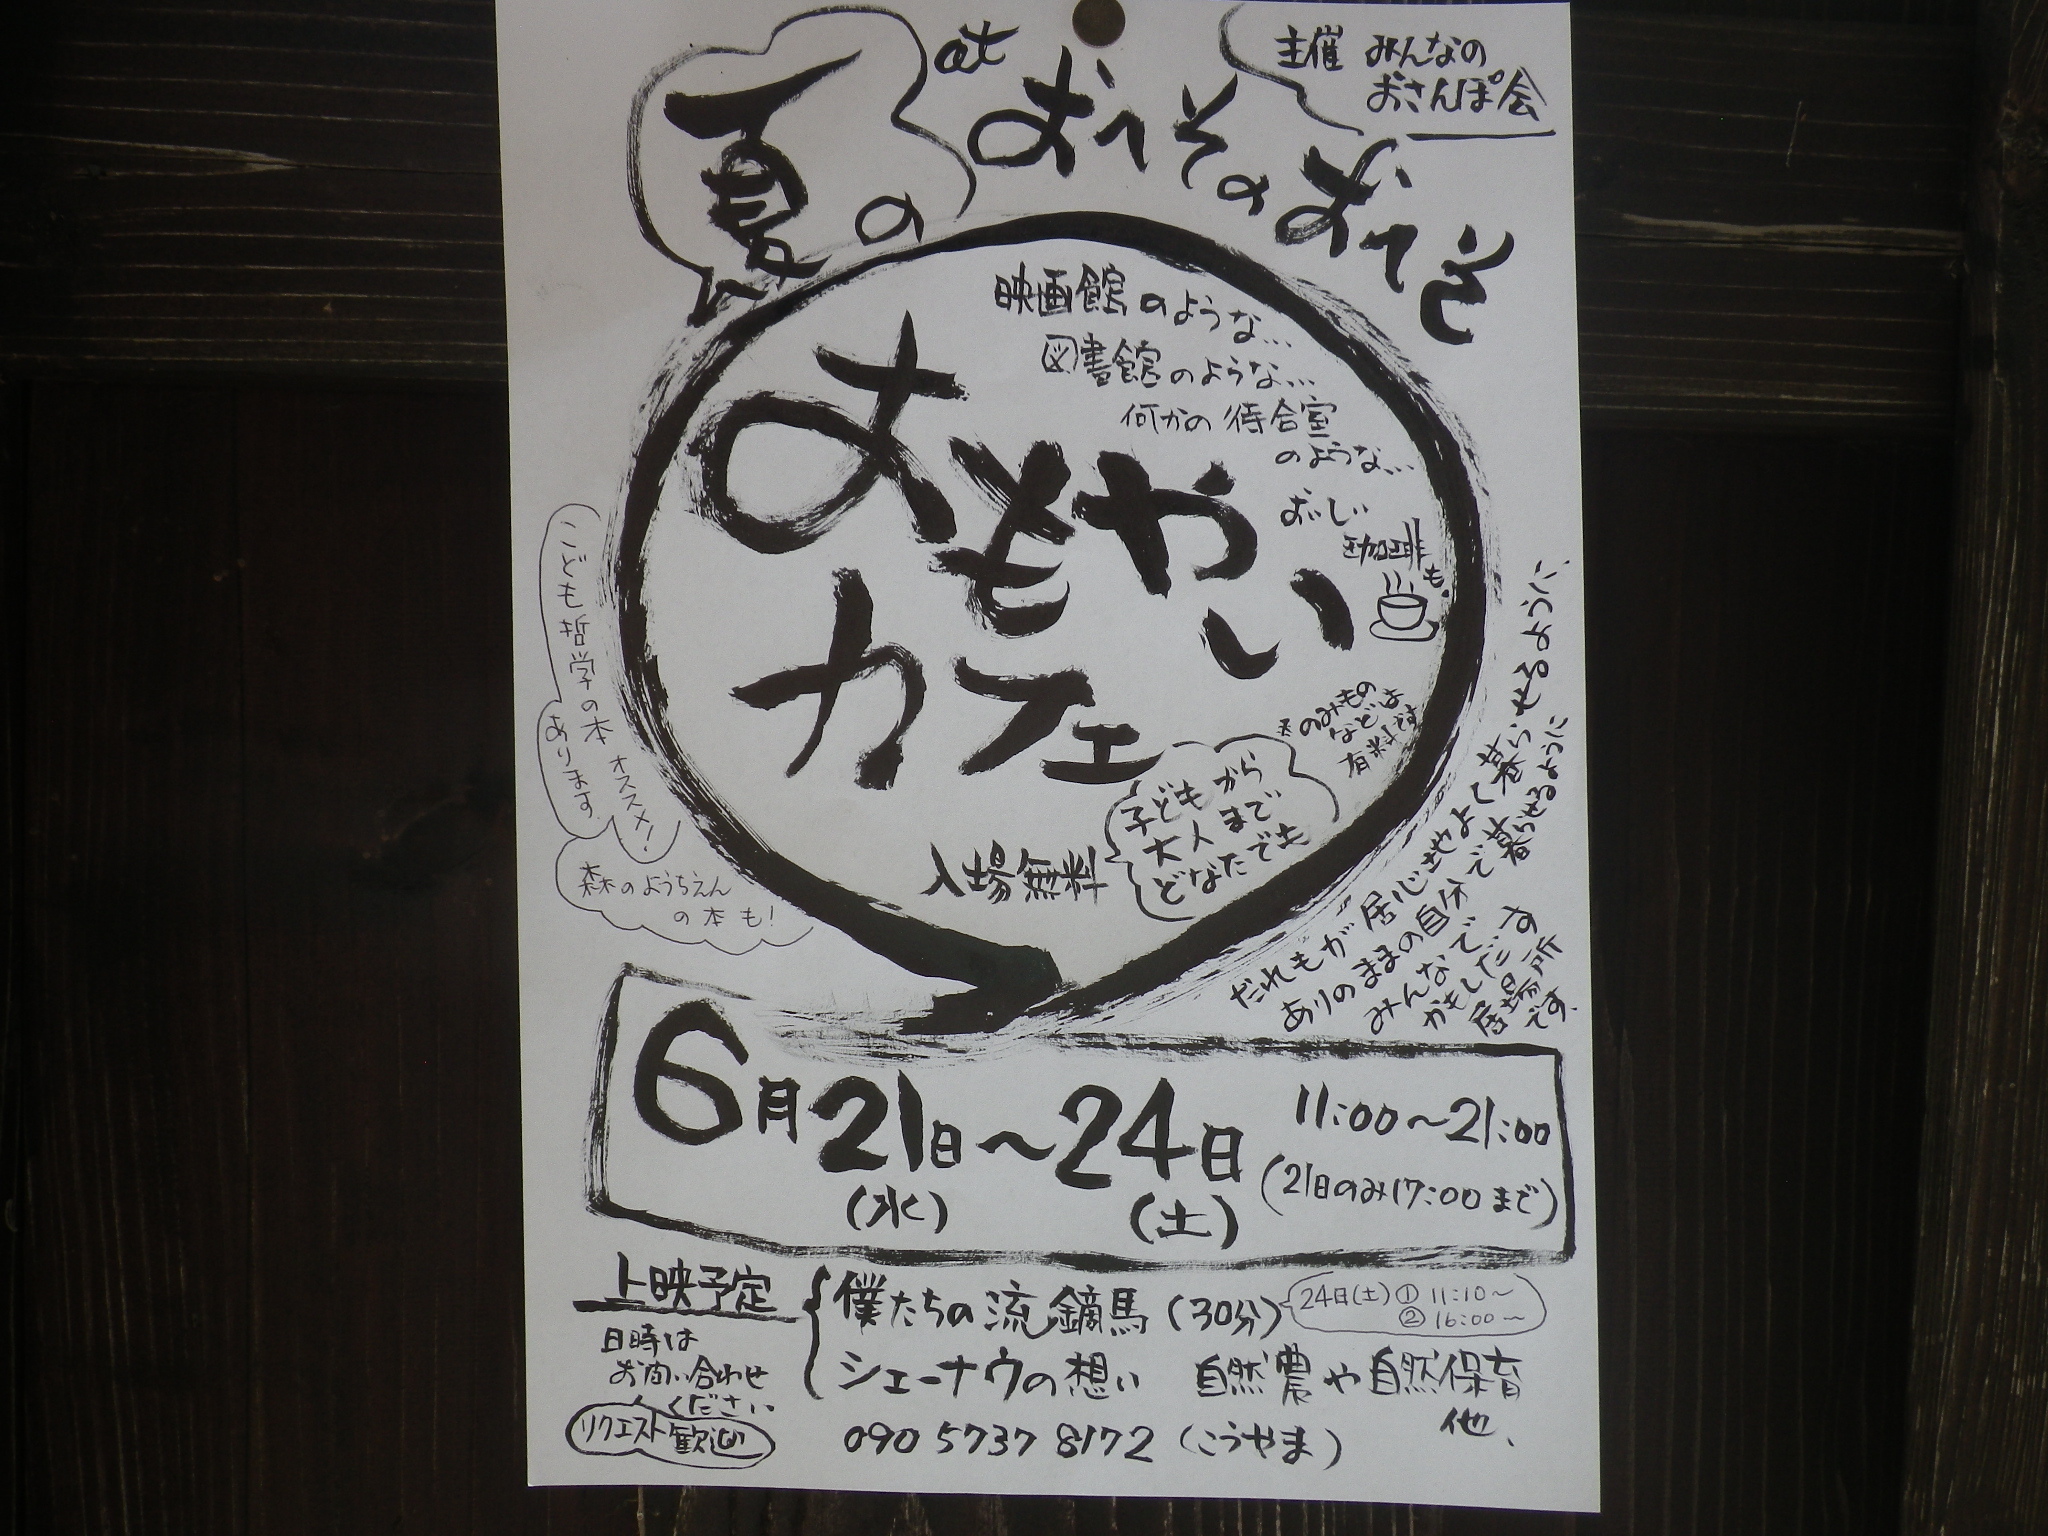 夏の
at
おへそのおへそ
主催 みんなの
おさんぽ会
映画館のような…
図書館のような…
何かの待合室
のような…
おいしい
珈琲も。
おもやい
カフェ
*のみもの
などは
有料です
子どもから
大人まで
どなたでも
入場無料
こども哲学の本
あります。
オススメ!
森のようちえん
の本も!
だれもが居心地よく暮らせるように、
ありのままの自分で暮らせるように
みんなで
かもしだす
居場所
です。
6月21日〜24日
(水)
(土)
11:00〜21:00
(21日のみ17:00まで)
上映予定
日時は
お問い合わせ
ください
リクエスト歓迎
僕たちの流鏑馬(30分)
24日(土)① 11:10〜
② 16:00〜
シェーナウの想い 自然農や自然保育
他、
090 5737 8172 (こうやま)